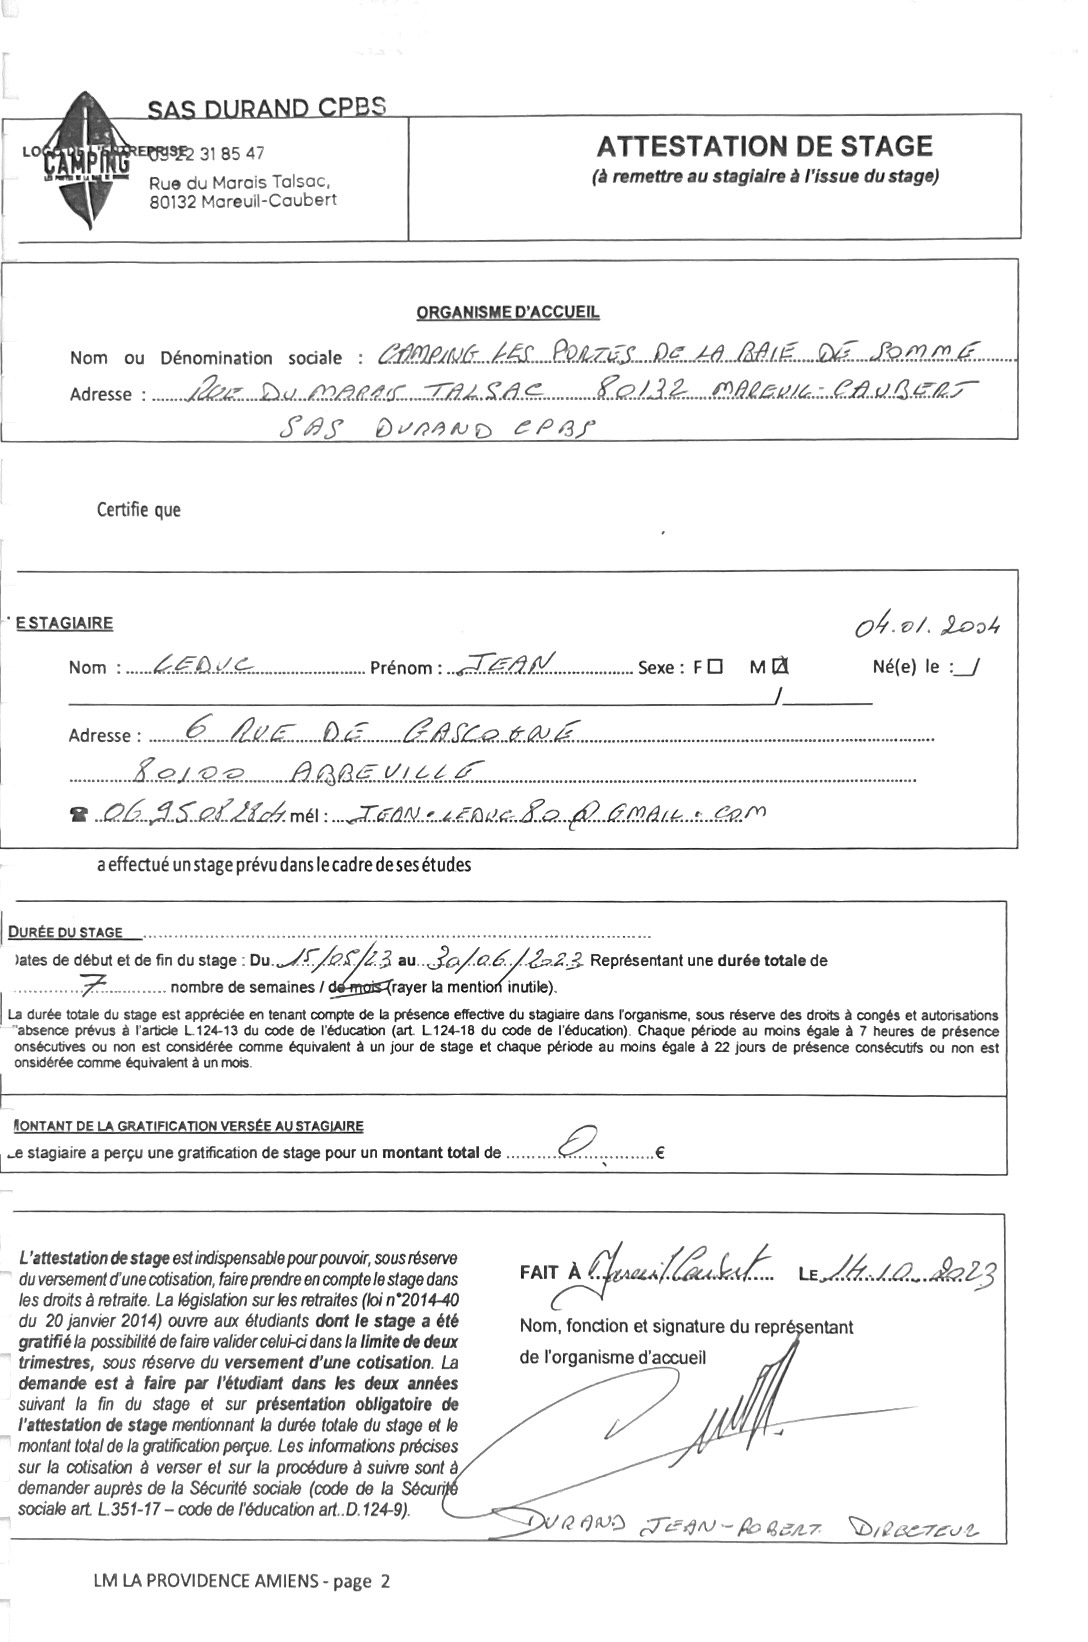 SAS DURAND CPBS
LOGO DE L'ENTREPRISE
CAMPING
03 22 31 85 47
Rue du Marais Talsac,
80132 Mareuil-Caubert
ATTESTATION DE STAGE
(à remettre au stagiaire à l'issue du stage)
ORGANISME D'ACCUEIL
Nom ou Dénomination sociale : CAMPING LES PORTES DE LA BAIE DE SOMME
Adresse : RUE DU MARAIS TALSAC 80132 MAREUIL-CAUBERT
SAS DURAND CPBS
Certifie que
E STAGIAIRE
04.01.2004
Nom : LEDUC Prénom : JEAN Sexe : F ☐ M ☑ Né(e) le : __/
/
Adresse : 6 RUE DE GASCOGNE
80100 ABBEVILLE
☎ 06 95 08 28 04 mél : JEAN.LEDUC80@GMAIL.COM
a effectué un stage prévu dans le cadre de ses études
DURÉE DU STAGE
Dates de début et de fin du stage : Du 15/05/23 au 30/06/2023 Représentant une durée totale de
7 nombre de semaines / de mois (rayer la mention inutile).
La durée totale du stage est appréciée en tenant compte de la présence effective du stagiaire dans l'organisme, sous réserve des droits à congés et autorisations
'absence prévus à l'article L.124-13 du code de l'éducation (art. L.124-18 du code de l'éducation). Chaque période au moins égale à 7 heures de présence
onsécutives ou non est considérée comme équivalent à un jour de stage et chaque période au moins égale à 22 jours de présence consécutifs ou non est
onsidérée comme équivalent à un mois.
MONTANT DE LA GRATIFICATION VERSÉE AU STAGIAIRE
Le stagiaire a perçu une gratification de stage pour un montant total de 0 €
L'attestation de stage est indispensable pour pouvoir, sous réserve
du versement d'une cotisation, faire prendre en compte le stage dans
les droits à retraite. La législation sur les retraites (loi n°2014-40
du 20 janvier 2014) ouvre aux étudiants dont le stage a été
gratifié la possibilité de faire valider celui-ci dans la limite de deux
trimestres, sous réserve du versement d'une cotisation. La
demande est à faire par l'étudiant dans les deux années
suivant la fin du stage et sur présentation obligatoire de
l'attestation de stage mentionnant la durée totale du stage et le
montant total de la gratification perçue. Les informations précises
sur la cotisation à verser et sur la procédure à suivre sont à
demander auprès de la Sécurité sociale (code de la Sécurité
sociale art. L.351-17 – code de l'éducation art..D.124-9).
FAIT À Mareuil Caubert LE 14.10.2023
Nom, fonction et signature du représentant
de l'organisme d'accueil
DURAND JEAN-ROBERT DIRECTEUR
LM LA PROVIDENCE AMIENS - page 2